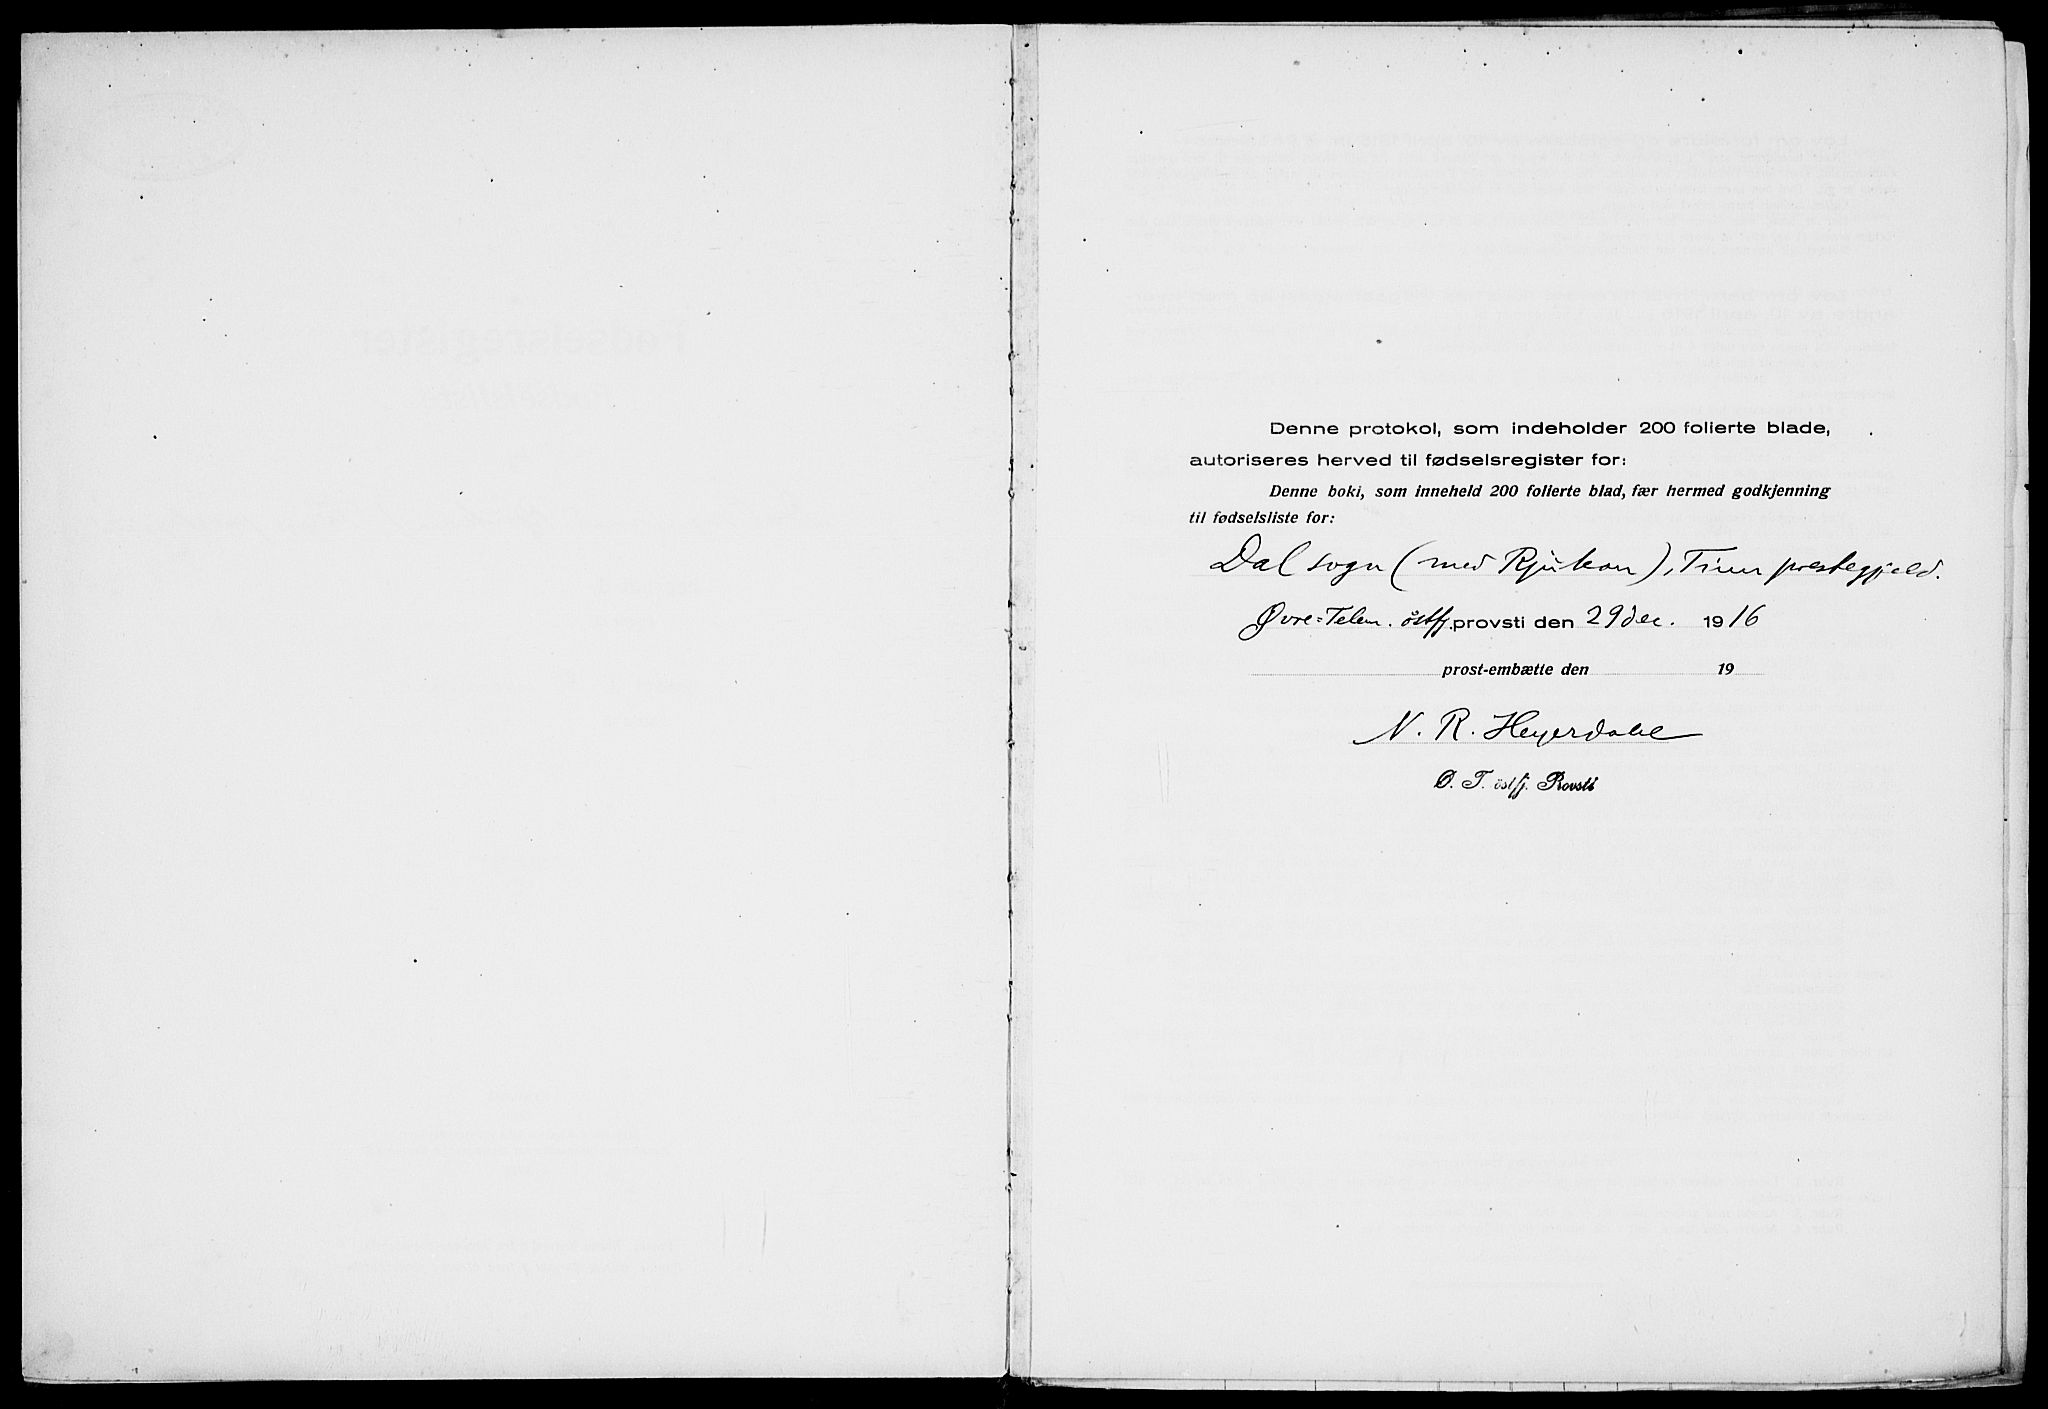 Denne protokol, som indeholder 200 folierte blade,
autoriseres herved til fødselsregister for:
Denne boki, som inneheld 200 folierte blad, fær hermed godkjenning
til fødselsliste for:
Dal sogn (med Rjukan), Tinn prestegjeld.
Øvre=Telem. østfj. provsti den 29 des. 1916
prost-embætte den 19
N. R. Heyerdahl
Ø. T. östfj. Provsti